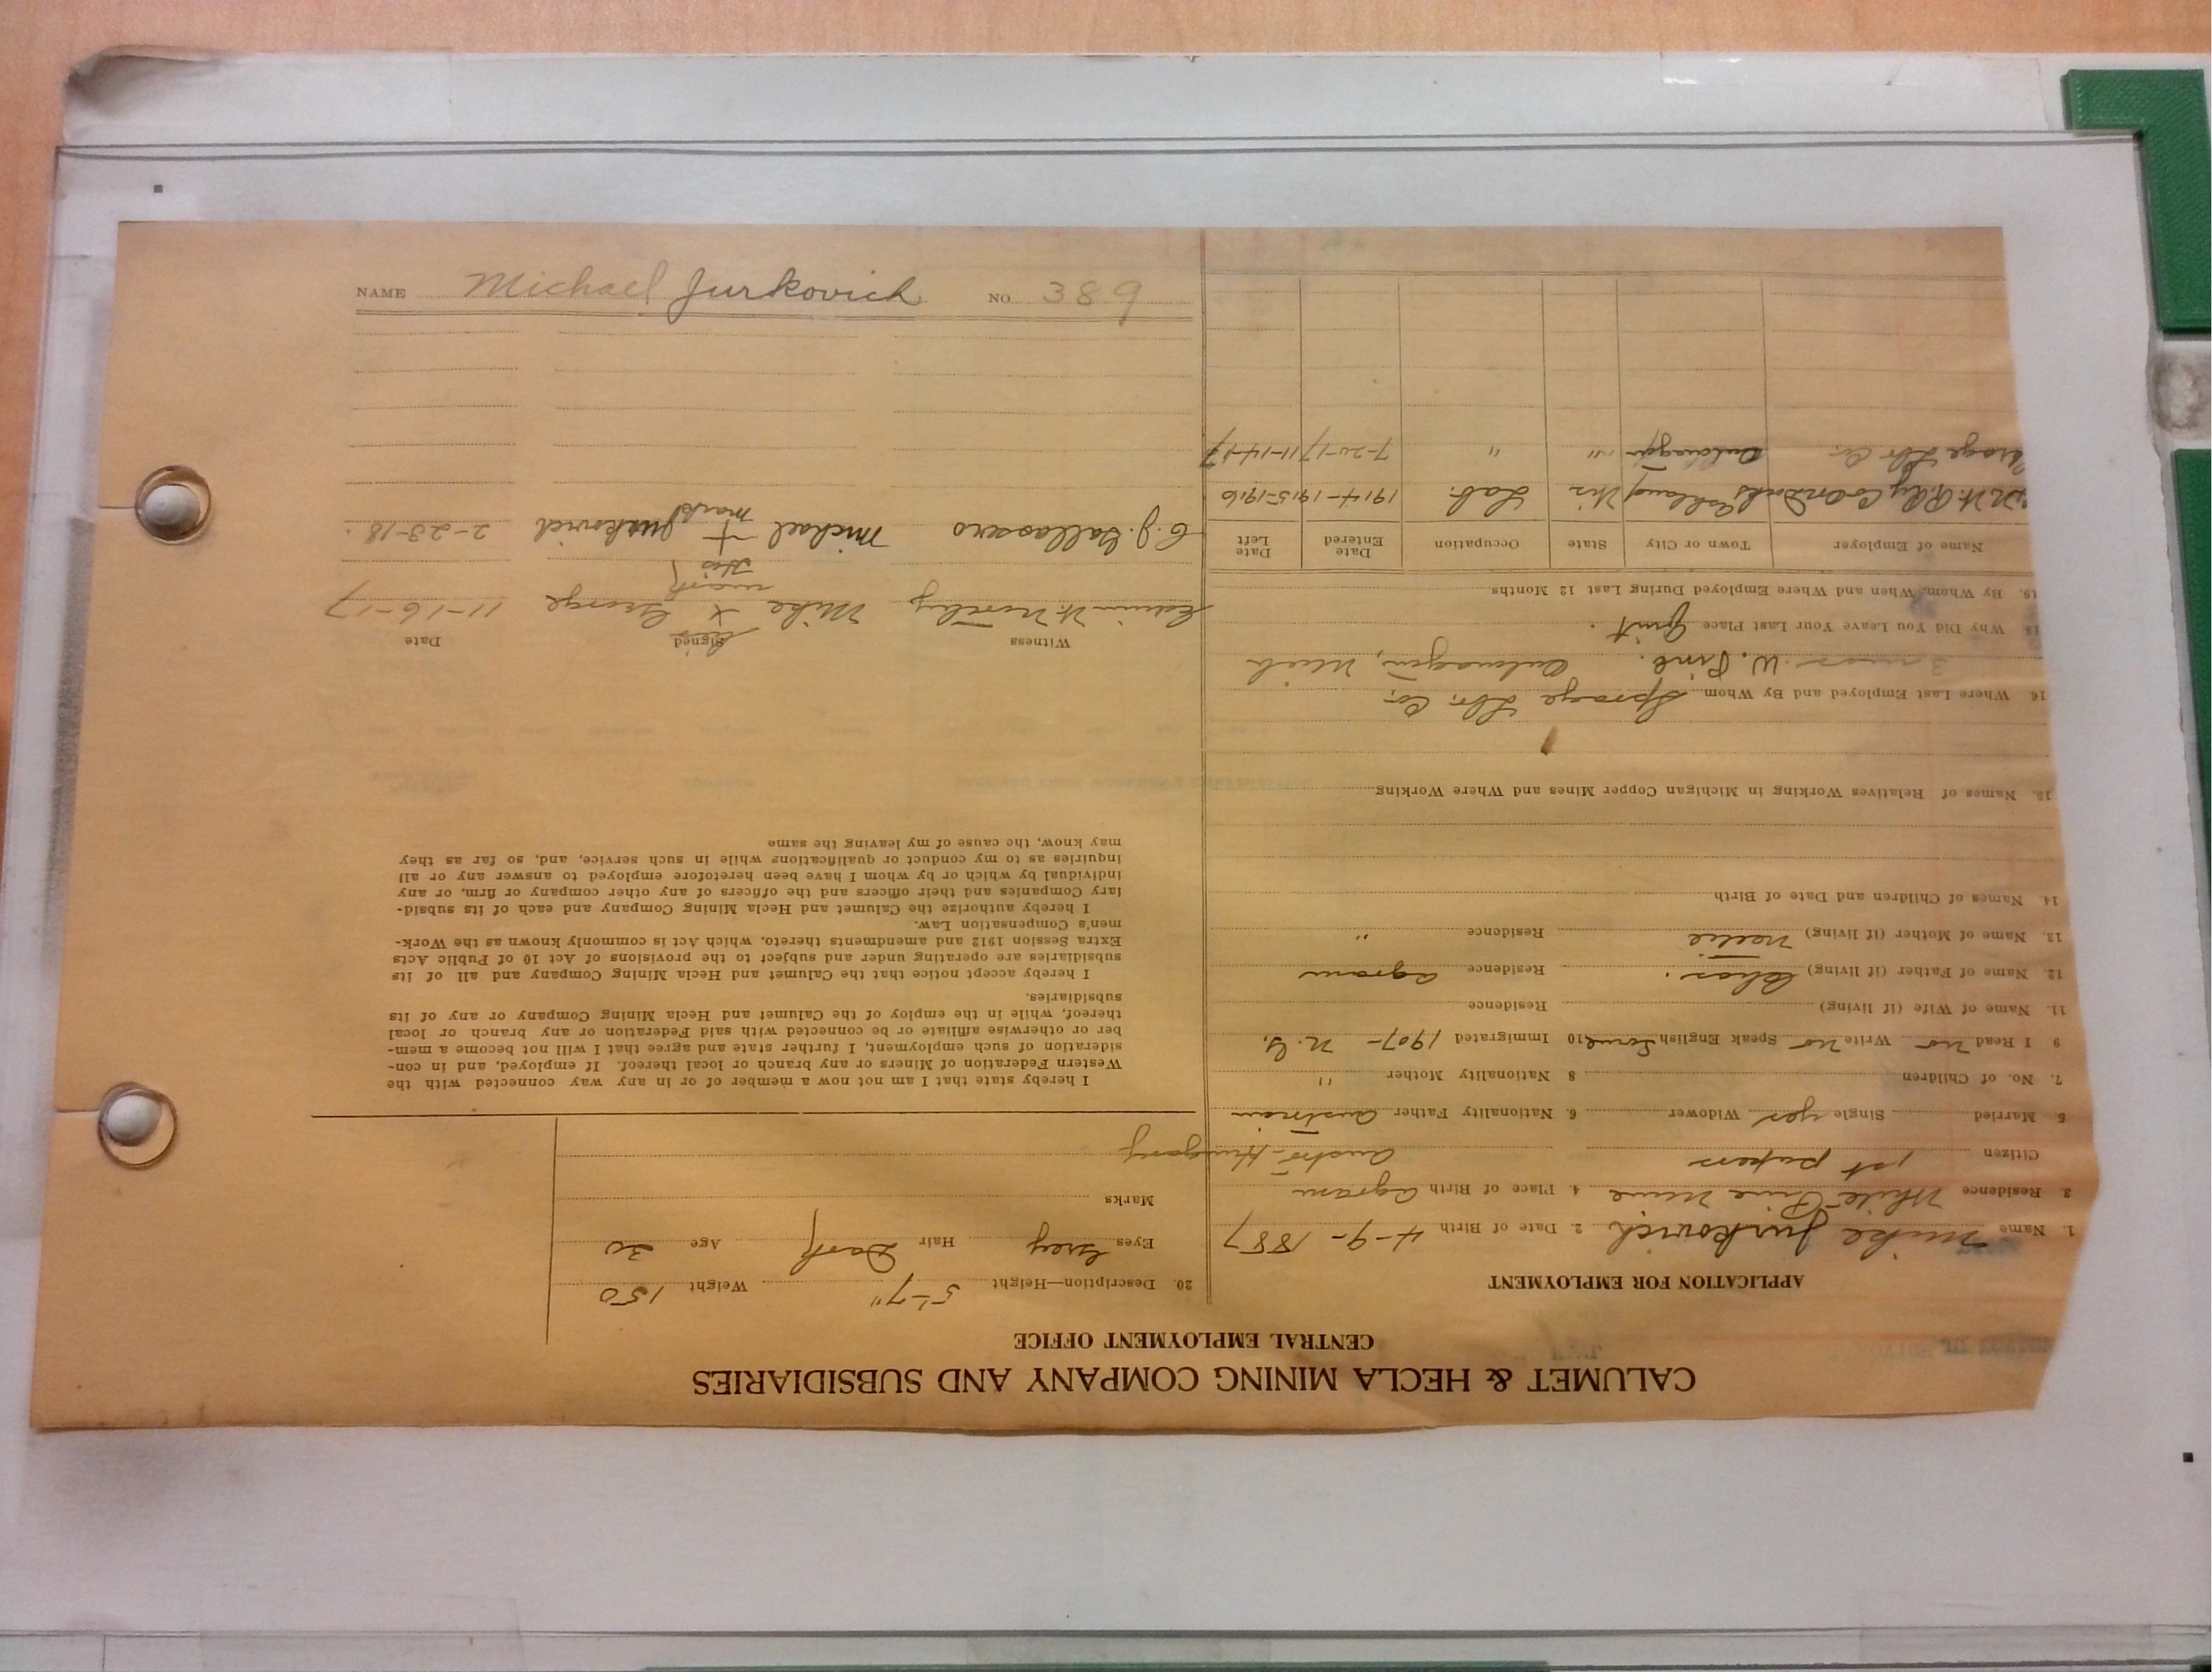 CALUMET & HECLA MINING COMPANY AND SUBSIDIARIES
CENTRAL EMPLOYMENT OFFICE
APPLICATION FOR EMPLOYMENT
1. Name Mike Jurkovich 2. Date of Birth 4-9-1887
3. Residence White Pine Mine 4. Place of Birth Agram
Citizen 1st papers Austro-Hungary
5 Married Single yes Widower 6. Nationality Father Austrian
7. No. of Children 8 Nationality Mother "
9 I Read no Write no Speak English Some 10 Immigrated 1907- N.Y.
11. Name of Wife (if living) Residence
12. Name of Father (if living) Chas. Residence Agram
13. Name of Mother (if living) Residence "
14. Names of Children and Date of Birth
15. Names of Relatives Working in Michigan Copper Mines and Where Working
16. Where Last Employed and By Whom Sprage Lbr. Co.
3 mos. W. Pine. Mich
18 Why Did You Leave Your Last Place Quit.
19. By Whom, When and Where Employed During Last 12 Months
Name of Employer Town or City State Occupation Date Entered Date Left
Ashland Wis Lab. 1914-1915-1916
Lbr Co. " " 7-20-17 11-14-17
20. Description—Height 5'-7" Weight 150
Eyes Grey Hair Dark Age 30
Marks
I hereby state that I am not now a member of or in any way connected with the
Western Federation of Miners or any branch or local thereof. If employed, and in con-
sideration of such employment, I further state and agree that I will not become a mem-
ber or otherwise affiliate or be connected with said Federation or any branch or local
thereof, while in the employ of the Calumet and Hecla Mining Company or any of its
subsidiaries.
I hereby accept notice that the Calumet and Hecla Mining Company and all of its
subsidiaries are operating under and subject to the provisions of Act 10 of Public Acts
Extra Session 1912 and amendments thereto, which Act is commonly known as the Work-
men's Compensation Law.
I hereby authorize the Calumet and Hecla Mining Company and each of its subsid-
iary Companies and their officers and the officers of any other company or firm, or any
individual by which or by whom I have been heretofore employed to answer any or all
inquiries as to my conduct or qualifications while in such service, and, so far as they
may know, the cause of my leaving the same
Witness Signed Date
his
Edwin W. Mike X George 11-16-17
mark
His
C. J. Michael + Jurkovich 2-23-18.
mark
NAME Michael Jurkovich NO. 389